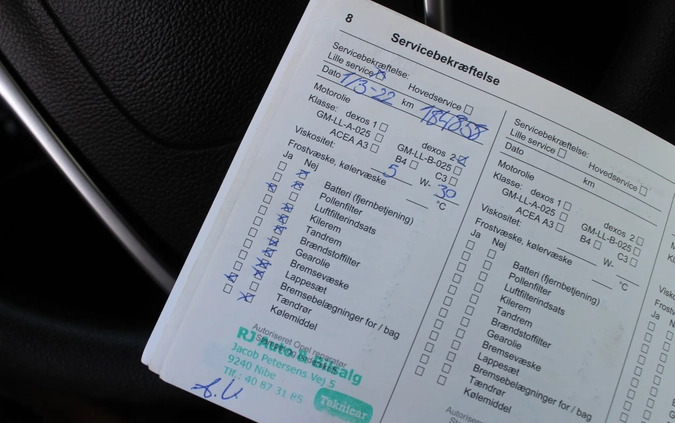 8
Servicebekræftelse
Servicebekræftelse:
Lille service Hovedservice
Dato 1/3-22 km 184858
Motorolie
Klasse: dexos 1 dexos 2
GM-LL-A-025 GM-LL-B-025
ACEA A3 B4 C3
Viskositet: 5 W- 30
Frostvæske, kølervæske °C
Ja Nej
Batteri (fjernbetjening)
Pollenfilter
Luftfilterindsats
Kilerem
Tandrem
Brændstoffilter
Gearolie
Bremsevæske
Lappesæt
Bremsebelægninger for / bag
Tændrør
Kølemiddel
Autoriseret Opel reparatør
RJ Auto & Bilsalg
Jacob Petersens Vej 5
9240 Nibe
Tlf.: 40 87 31 85
Teknicar
Servicebekræftelse:
Lille service Hovedservice
Dato km
Motorolie
Klasse: dexos 1 dexos 2
GM-LL-A-025 GM-LL-B-025
ACEA A3 B4 C3
Viskositet: W-
Frostvæske, kølervæske °C
Ja Nej
Batteri (fjernbetjening)
Pollenfilter
Luftfilterindsats
Kilerem
Tandrem
Brændstoffilter
Gearolie
Bremsevæske
Lappesæt
Bremsebelægninger for / bag
Tændrør
Kølemiddel
Autoriseret